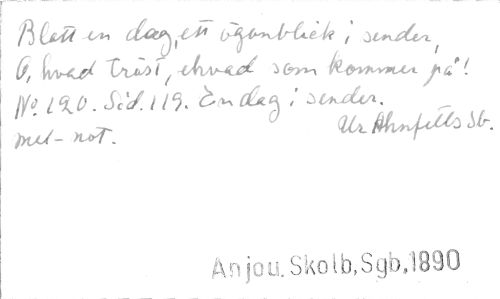 Blott en dag, ett ögonblick i sender,
O, hvad tröst, ehvad som kommer på!
No. 120. Sid. 119. En dag i sender.
mel-not. Ur Ahnfelts Sb.
Anjou. Skolb, Sgb, 1890